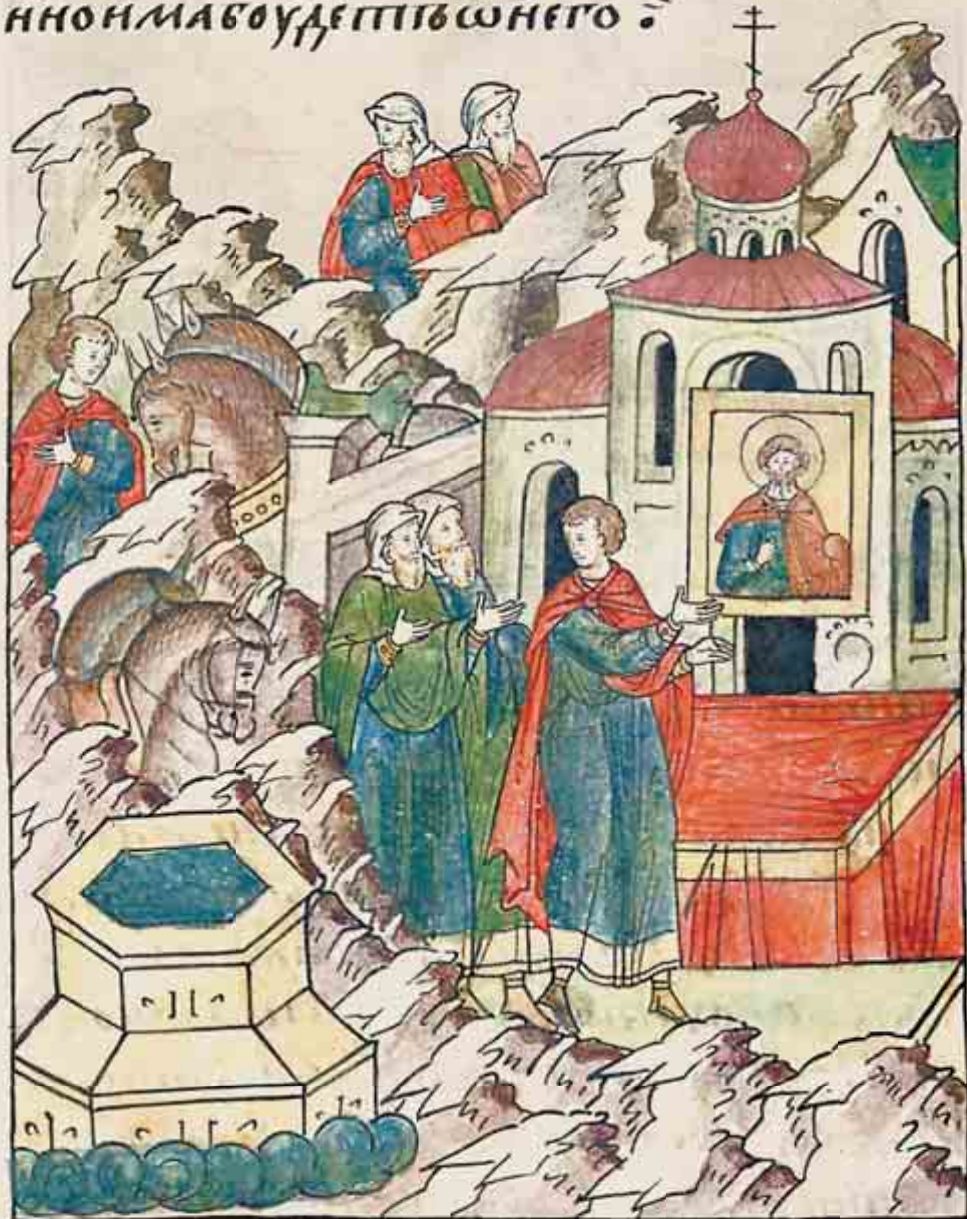 нноимабоудетъѿнего